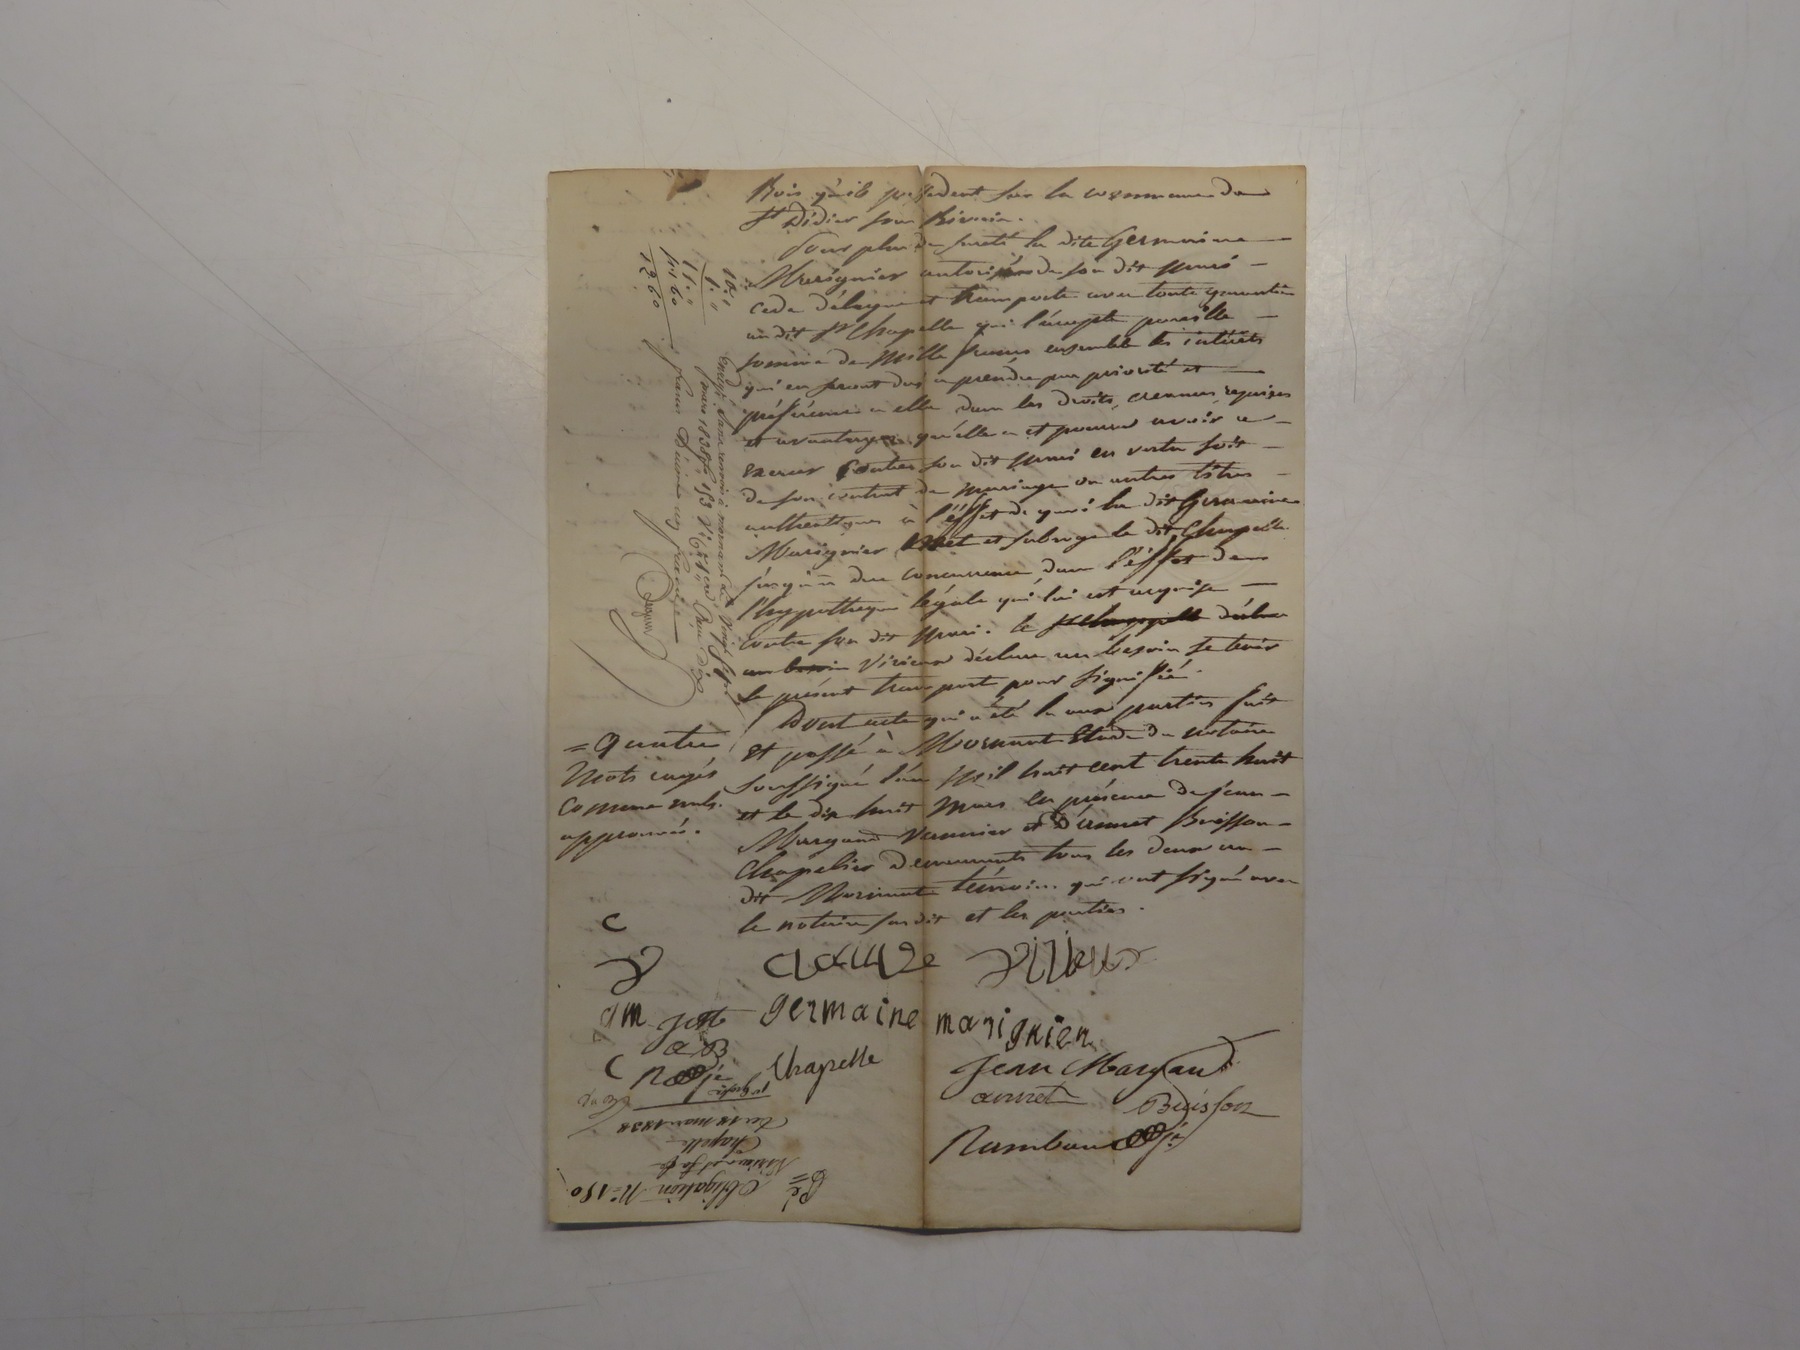 Bois qu'ils possedent sur la commune de
St Didier sous Riverie.
Pour plus de sureté la dite Germaine
Marignier autorisée de son dit mari
cede délegue et transporte avec toute garantie
au dit Sr Chapelle qui l'accepte pareille
somme de Mille francs ensemble les intérêts
qui en seront dus a prendre par priorité et
préférence a elle dans les droits, creances, reprises
et avantages qu'elle a et pourra avoir a
exercer Contre son dit mari en vertu soit
de son contrat de mariage ou autres titres
authentiques à l'effet de quoi la dite Germaine
Marignier met et subroge le dit Chapelle
jusqu'a due concurrence dans l'effet de
l'hypothèque légale qui lui est acquise
Contre son dit mari. le Sr Chapelle déclare
au besoin Virieux déclare au besoin se tenir
le présent transport pour signifié.
Dont acte qui a été lu aux parties fait
et passé à Mornant Etude du notaire
soussigné l'an Mil huit cent trente huit
et le dix huit Mars en présence de jean
Margand Vannier et Annet Buisson
Chapelier demeurants tous les deux au
dit Mornant témoins qui ont signé avec
le notaire susdit et les parties.
= quatre
Mots rayés
Comme nuls.
approuvés.
10,"
1,"
11,"
1,60
12,60
mars 1838 fo 153
C
claude Virieux
gm
germaine marignien
C
Chapelle
Jean Margand
annet Buisson
Rambaud
Obligation No 150
Virieux et sa fe
Chapelle
Du 18 mars 1838